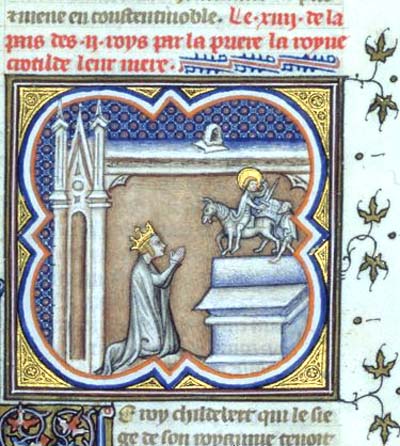 ⁊ mene en constentinoble. Le .xiiij. de la
pais des .ij. roys par la priere la royne
crotilde leur mere.
E roy childebert qui le sie
ge de son royaume tenoit